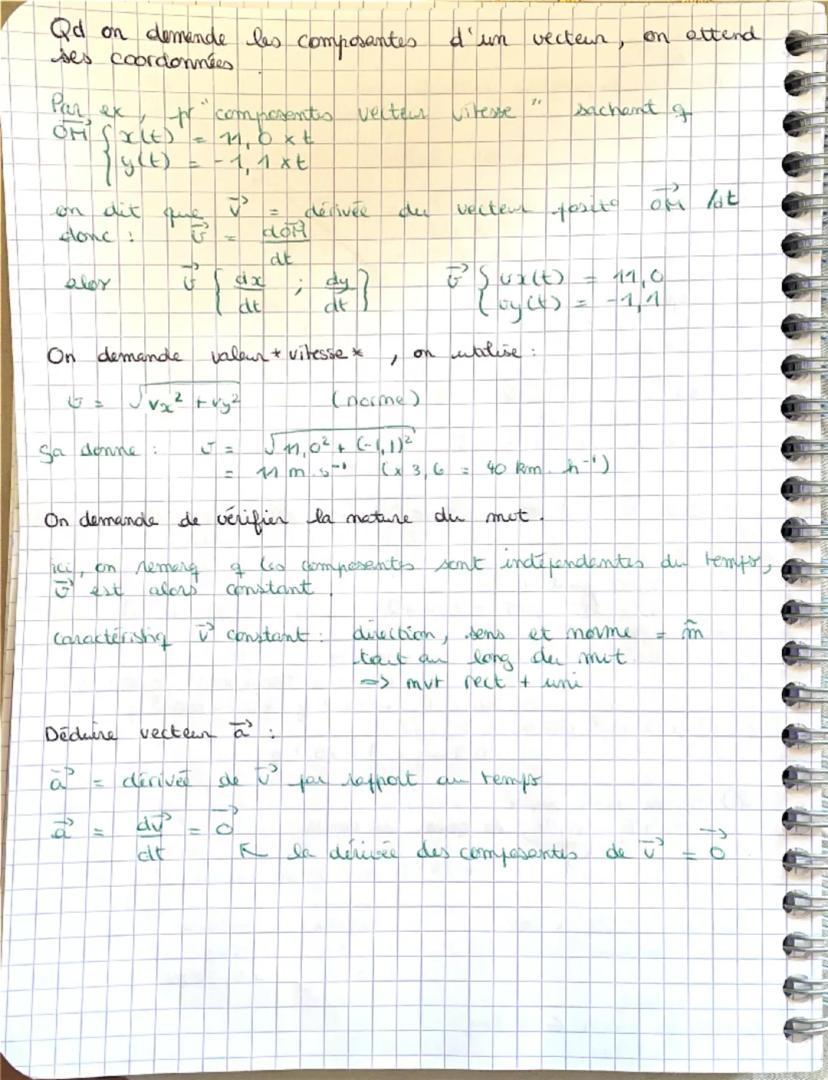 Qd on demande les composantes d'un vecteur, on attend
ses coordonnées.
Par ex, pr "composantes vecteur vitesse" sachant q
OM⃗ { x(t) = 11,0 x t
{ y(t) = -1,1 x t
on dit que v⃗ = dérivée du vecteur posit° OM⃗ /dt
donc : v⃗ = dOM⃗
dt
alors v⃗ { dx/dt ; dy/dt } v⃗ { vx(t) = 11,0
{ vy(t) = -1,1
On demande valeur * vitesse *, on utilise :
v = √vx² + vy² (norme)
ça donne : v = √11,0² + (-1,1)²
= 11 m.s⁻¹ (x 3,6 = 40 km.h⁻¹)
On demande de vérifier la nature du mvt.
ici, on remarq q les composantes sont indépendantes du temps,
v⃗ est alors constant.
caractéristiq v⃗ constant : direction, sens et norme = m̃
tout au long du mvt
=> mvt rect + uni
Déduire vecteur a⃗ :
a⃗ = dérivée de v⃗ par rapport au temps
a⃗ = dv⃗/dt = 0⃗
↖ la dérivée des composantes de v⃗ = 0⃗